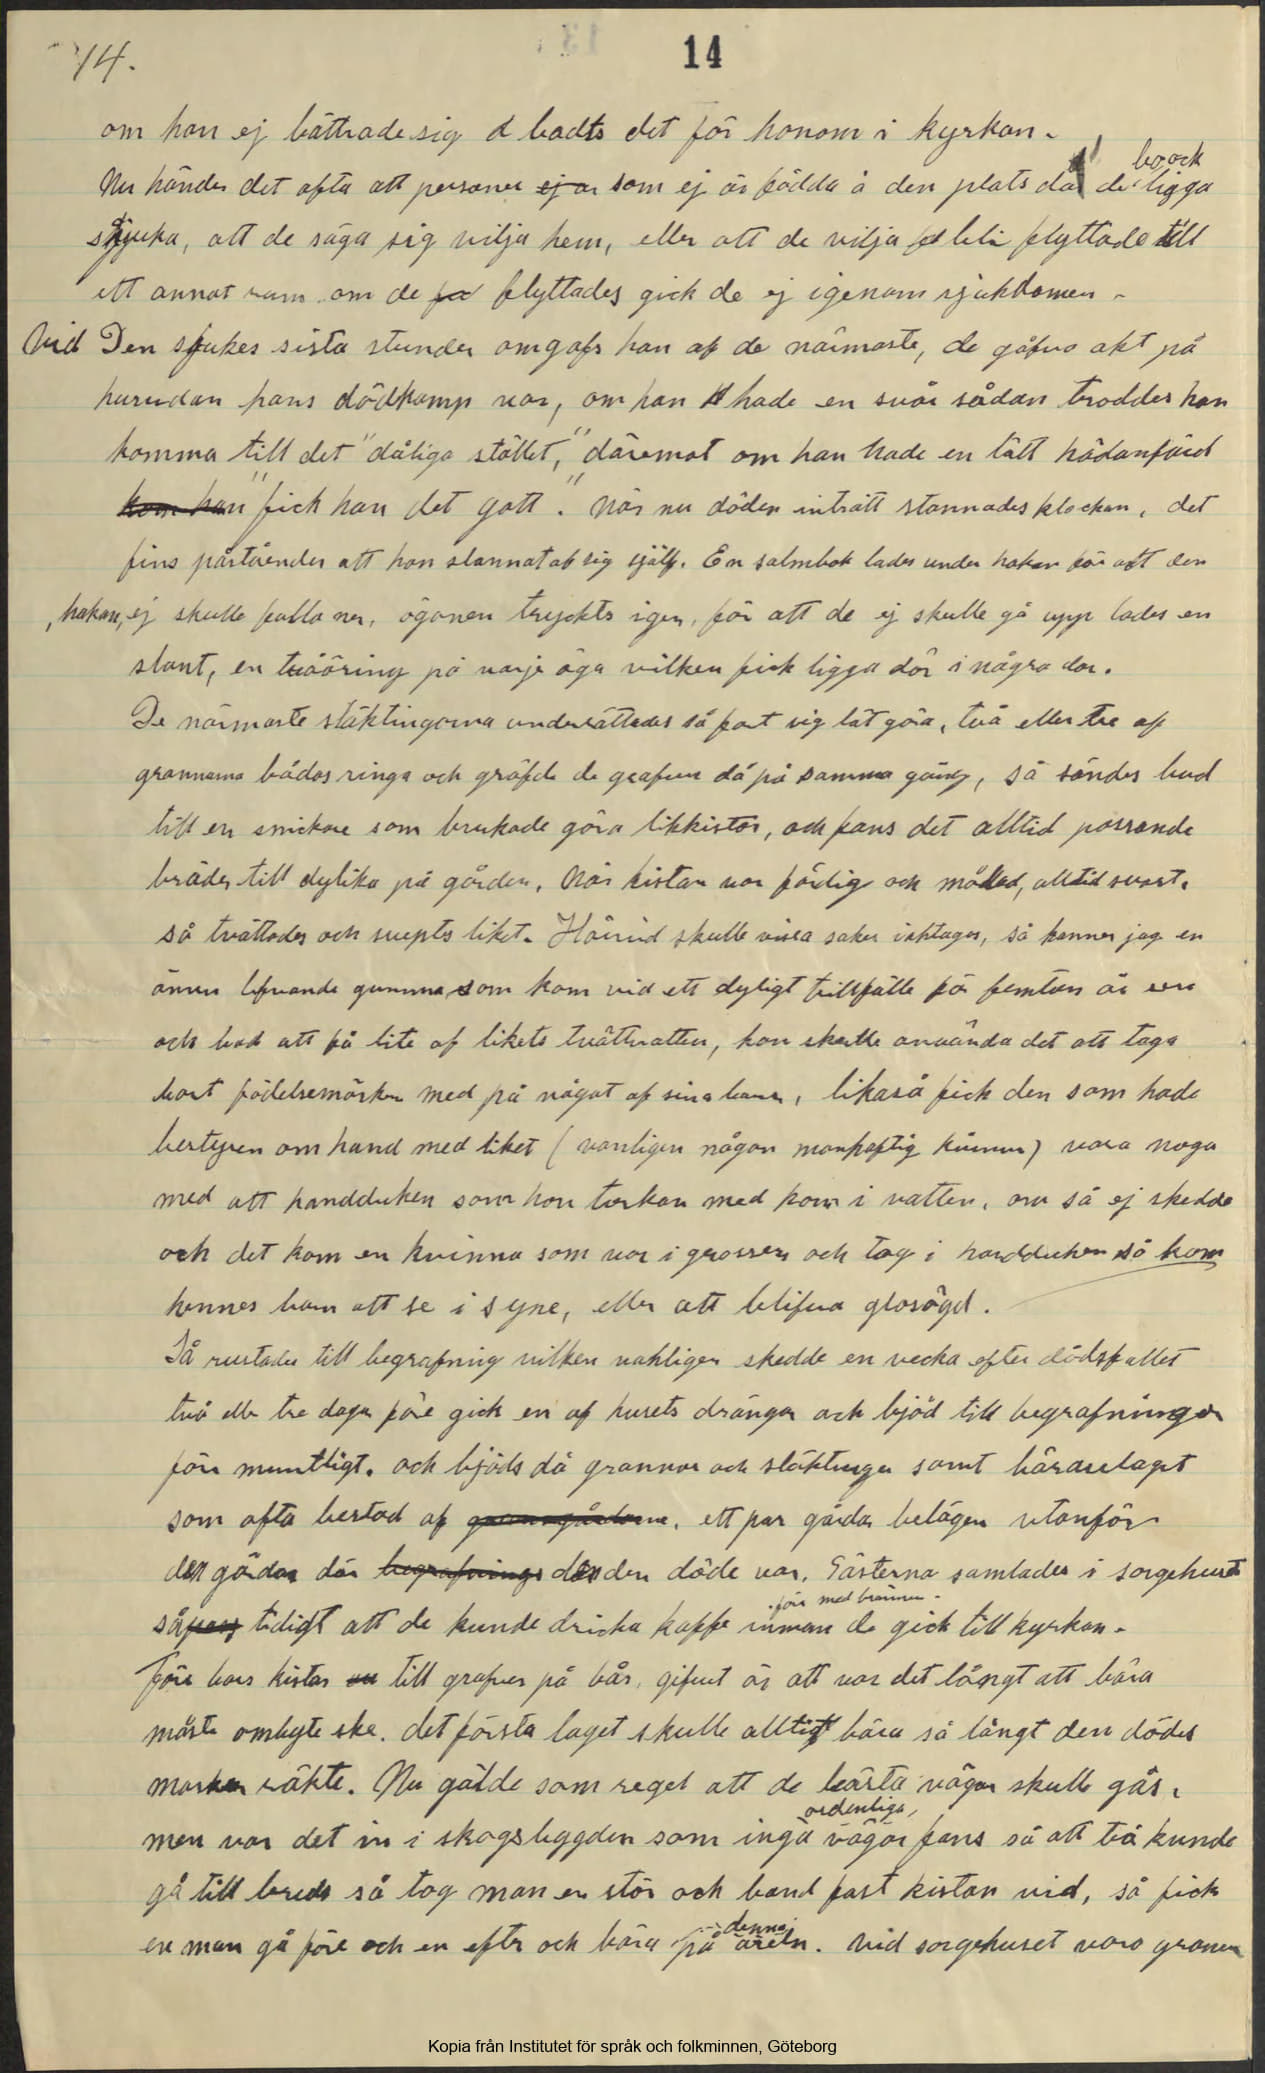 14.
14
om han ej bättrade sig d badts det för honom i kyrkan.
bo, och
Nu händer det ofta att personer ej är som ej är födda å den plats där de ligga
sjuka, att de säga sig vilja hem, eller att de vilja bli flyttade till
ett annat rum om de flyttades gick de ej igenom sjukdomen.
Vid Den sjukes sista stunder omgafs han af de närmaste, de gåfvo akt på
hurudan hans dödkamp var, om han hade en svår sådan troddes han
komma till det "dåliga stället," däremot om han hade en lätt hädanfärd
kom han "fick han det gott". När nu döden inträtt stannades klockan, det
fins påståenden att hon stannat af sig själf. En salmbok lades under hakan för att den
, hakan, ej skulle falla ner, ögonen tryckts igen, för att de ej skulle gå upp lades en
slant, en tvååring på varje öga vilken fick ligga där i några dar.
De närmaste släktingarna underättades så fort sig låt göra, två eller tre af
grannarna bådos ringa och gräfde de grafven då på samma gång, så sändes bud
till en snickare som brukade göra likkistor, och fans det alltid passande
bräder till dylika på gården. När kistan var färdig och målad, alltid svart.
så tvättades och sveptes liket. Härvid skulle vissa saker iakttagas, så känner jag en
ännu lefvande gumma, som kom vid ett dylikt tillfälle för femton år sen
och bad att få lite af likets tvättvatten, hon skulle använda det att taga
bort födelsemärken med på något af sina barn, likaså fick den som hade
bestyren om hand med liket (vanligen någon manhaftig kvinna) vara noga
med att handduken som hon torkar med kom i vatten, om så ej skedde
och det kom en kvinna som var i grossess och tog i handduken så kom
hennes barn att se i syne, eller att blifva glosögd.
Så rustades till begrafning vilken vanligen skedde en vecka efter dödsfallet
två eller tre dagar före gick en af husets drängar och bjöd till begrafningen
förr muntligt. och bjöds då grannar och släktingar samt bärarelaget
som ofta bestod af granngårdarna, ett par gårdar belägen utanför
den gården där begrafnings den döde var. Gästerna samlades i sorgehuset
förr med brännvin
såpass tidigt att de kunde dricka kaffe innan de gick till kyrkan.
Förr bars kistan till grafven på bår, gifvet är att var det långt att bära
måste ombyte ske. det första laget skulle alltid bära så långt den dödes
marker räkte. Nu gälde som regel att de bästa vägar skulle gås,
ordentliga
men var det in i skogsbygden som inga vägar fans så att två kunde
gå till breds så tog man en stör och band fast kistan vid, så fick
denna
en man gå före och en efter och bära på axeln. Vid sorgehuset voro granar
Kopia från Institutet för språk och folkminnen, Göteborg